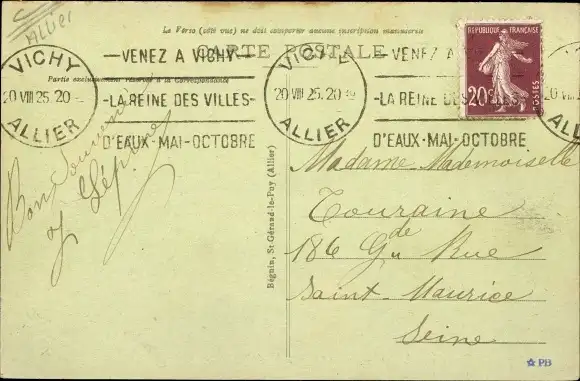 Allier
Le Verso (côté vue) ne doit comporter aucune inscription manuscrite
CARTE POSTALE
Partie exclusivement réservée à la Correspondance
VICHY
20 VIII 25.20
ALLIER
VENEZ A VICHY
LA REINE DES VILLES
D'EAUX·MAI-OCTOBRE
VICHY
20 VIII 25.20
ALLIER
VENEZ A
LA REINE DES
D'EAUX·MAI-OCTOBRE
ALLIER
REPUBLIQUE FRANÇAISE
20c
POSTES
Bon Souvenir
J Lépine
Béguin, St-Gérand-le-Puy (Allier)
Madame Mademoiselle
Touraine
186 Gde Rue
Saint-Maurice
Seine
PB